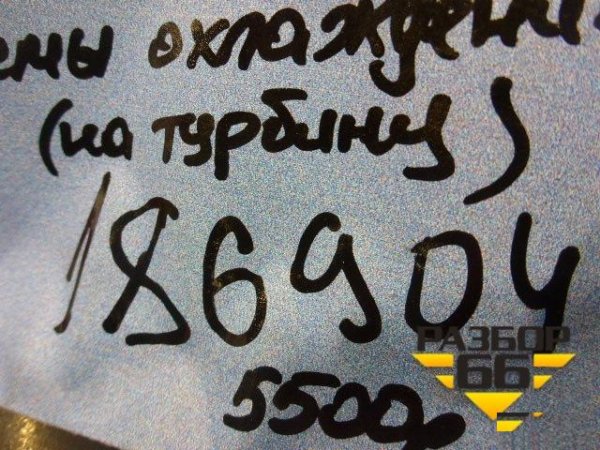 емы охлаждени
(на турбину)
186904
РАЗБОР
66
5500р